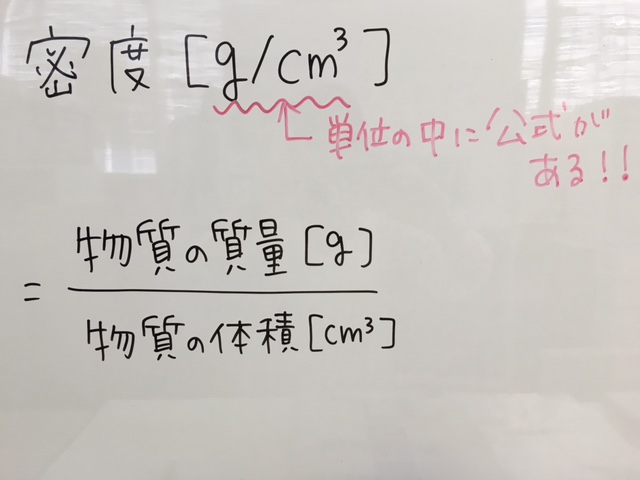 密度[g/cm³]
単位の中に'公式'が
ある!!
物質の質量[g]
=
物質の体積[cm³]